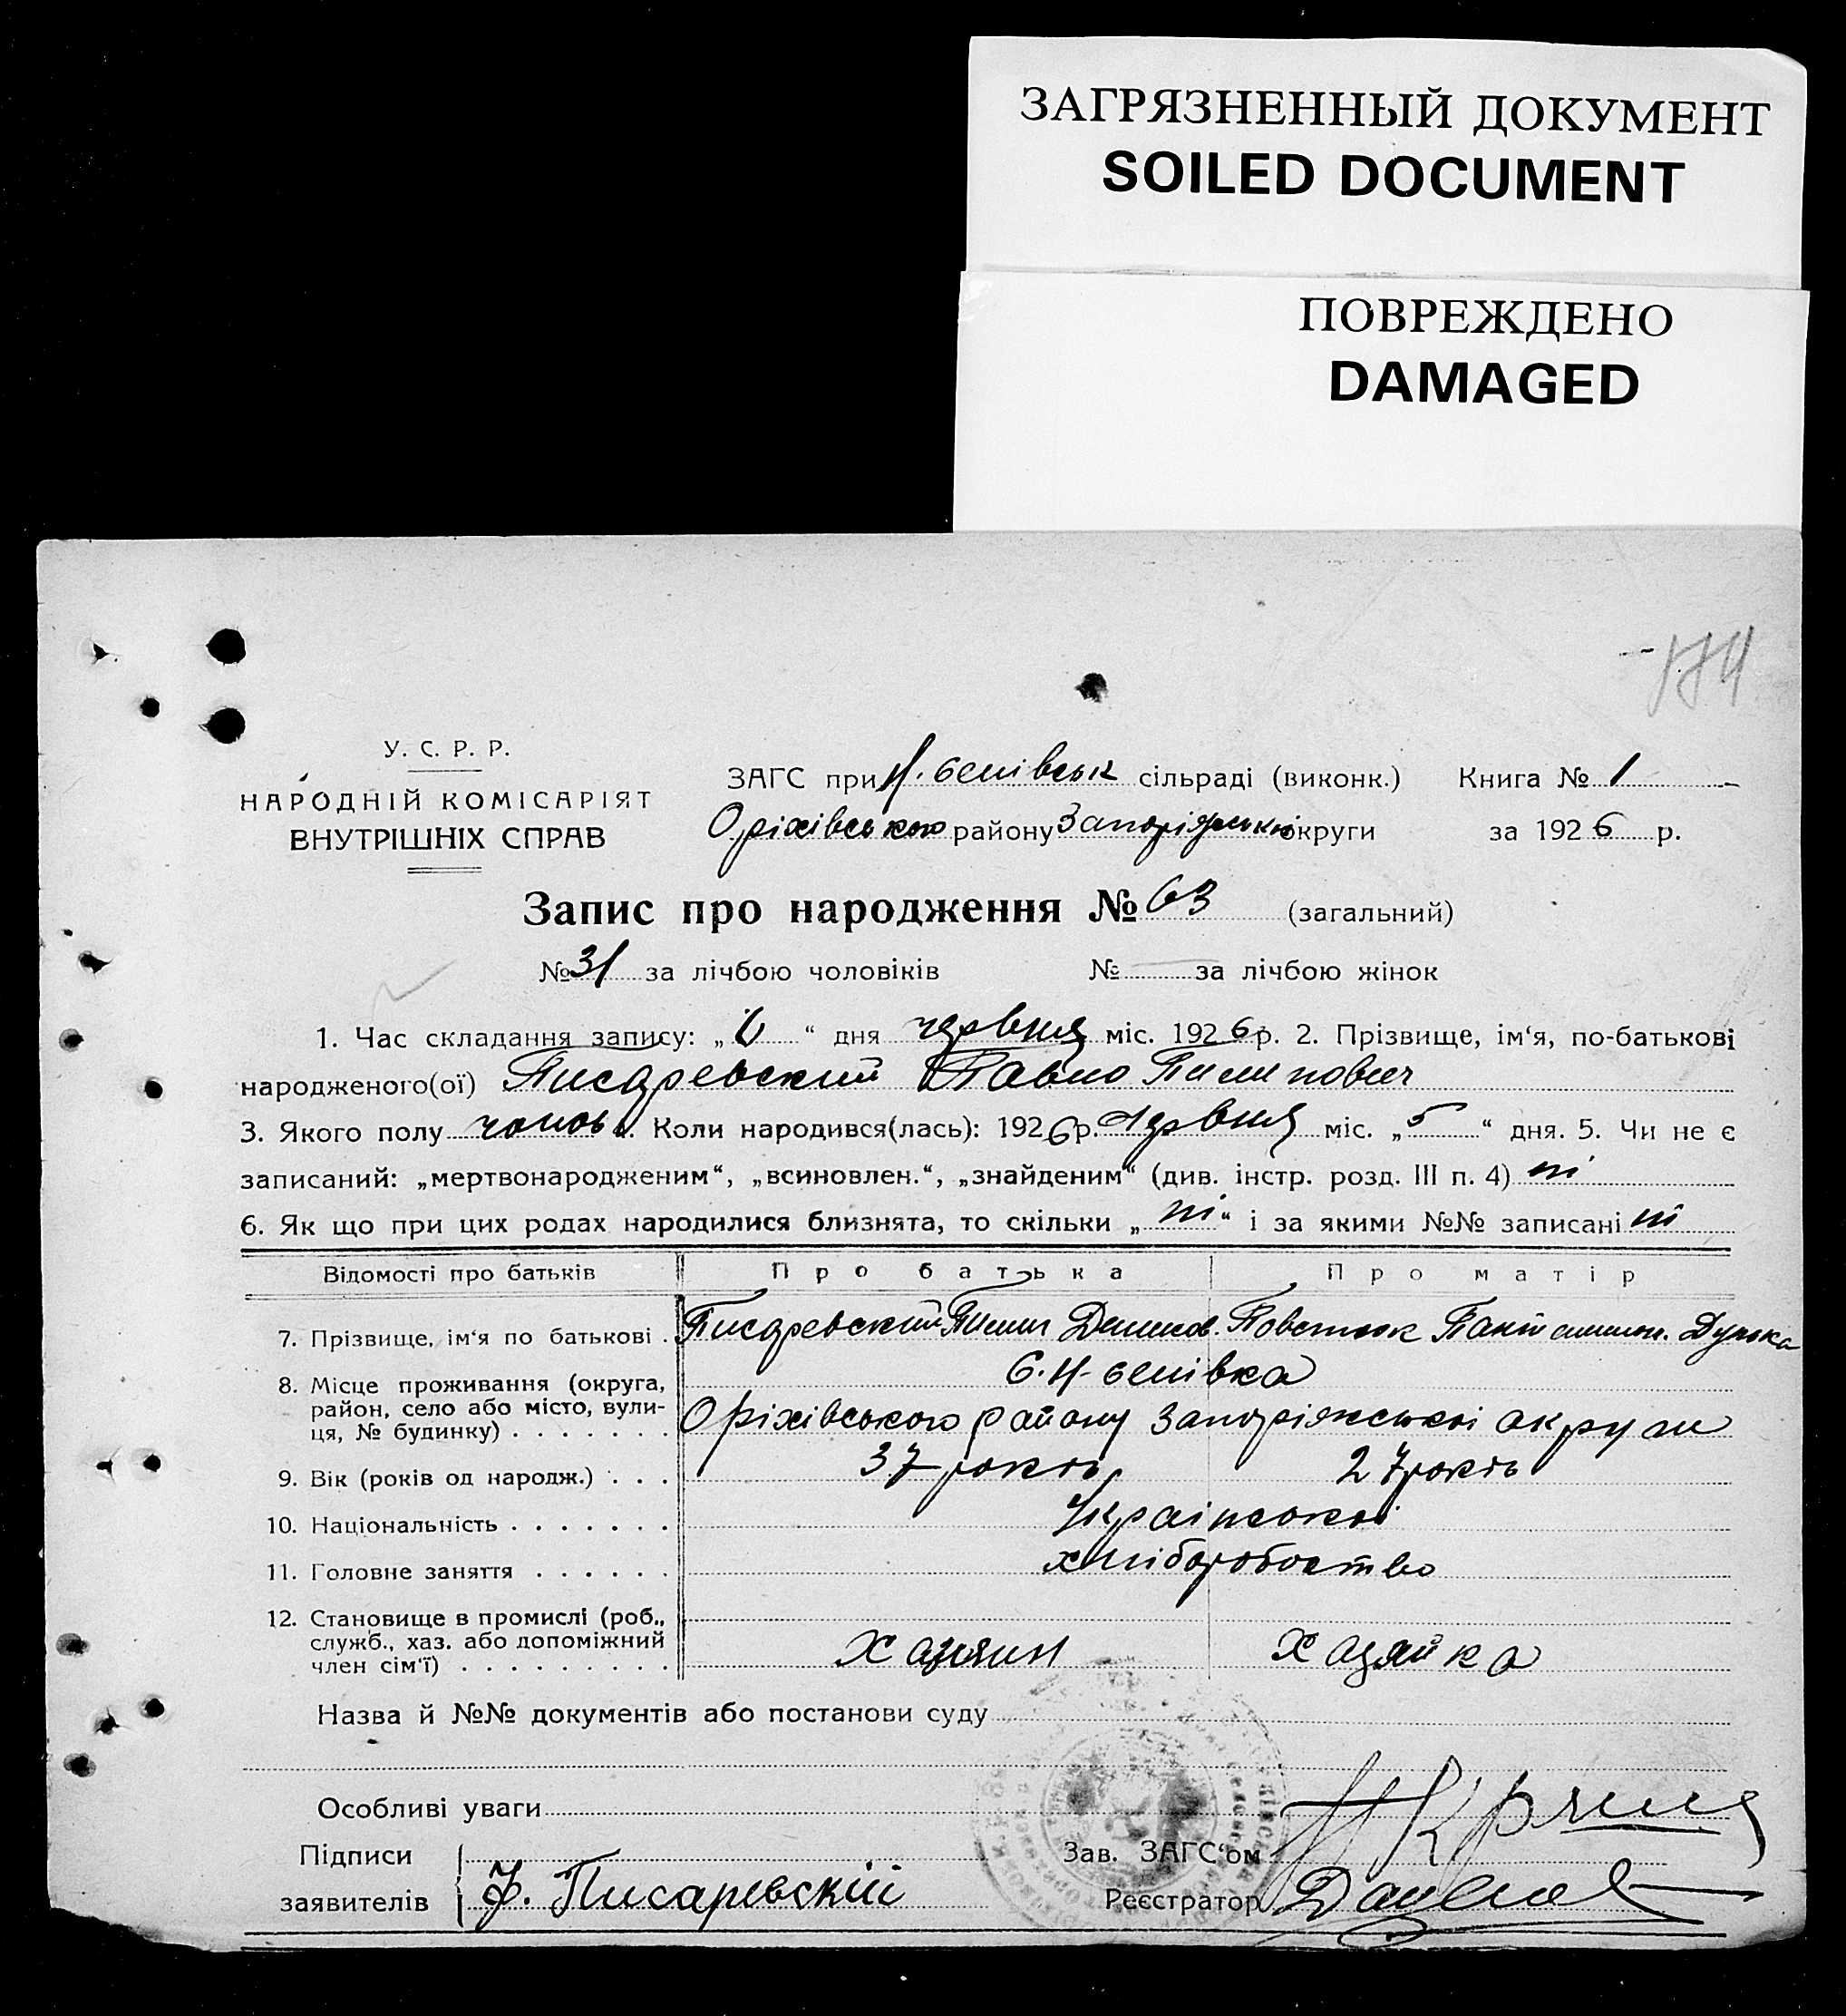 ЗАГРЯЗНЕННЫЙ ДОКУМЕНТ
SOILED DOCUMENT
ПОВРЕЖДЕНО
DAMAGED
174
У. С. Р. Р.
НАРОДНІЙ КОМІСАРІЯТ
ВНУТРІШНІХ СПРАВ
ЗАГС при сільраді (виконк.) Книга № 1
Оріхівського району Запоріжської округи за 1926 р.
Запис про народження № 63 (загальний)
№ 31 за лічбою чоловіків № — за лічбою жінок
1. Час складання запису: „ “ дня червня міс. 1926 р. 2. Прізвище, ім‘я, по-батькові
народженого(ої) Писаревский Павло Пилипович
3. Якого полу чолов. Коли народився(лась): 1926 р. червня міс. „5“ дня. 5. Чи не є
записаний: „мертвонародженим“, „всиновлен.“, „знайденим“ (див. інстр. розд. III п. 4) ні
6. Як що при цих родах народилися близнята, то скільки „ні“ і за якими №№ записані ні
Відомості про батьків Про батька Про матір
7. Прізвище, ім‘я по батькові . Писаревский Пилип Повстюк Дунька
8. Місце проживання (округа,
район, село або місто, вули-
ця, № будинку) . . . . . . . Оріхівського району Запоріжської округи
9. Вік (років од народж.) . . . 37 років 27 років
10. Національність . . . . . . . Української
11. Головне заняття . . . . . . хліборобство
12. Становище в промислі (роб.,
служб., хаз. або допоміжний
член сім‘ї) . . . . . . . . . Хазяин Хазяйка
Назва й №№ документів або постанови суду
Особливі уваги
Підписи
Зав. ЗАГС‘ом
заявителів Ф. Писаревскій Реєстратор